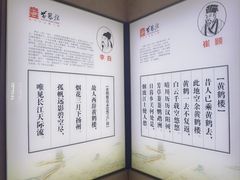 崔颢
【黄鹤楼】
昔人已乘黄鹤去，
此地空余黄鹤楼。
黄鹤一去不复返，
白云千载空悠悠。
晴川历历汉阳树，
芳草萋萋鹦鹉洲。
日暮乡关何处是，
烟波江上使人愁。
李白
故人西辞黄鹤楼，
烟花三月下扬州。
孤帆远影碧空尽，
唯见长江天际流。